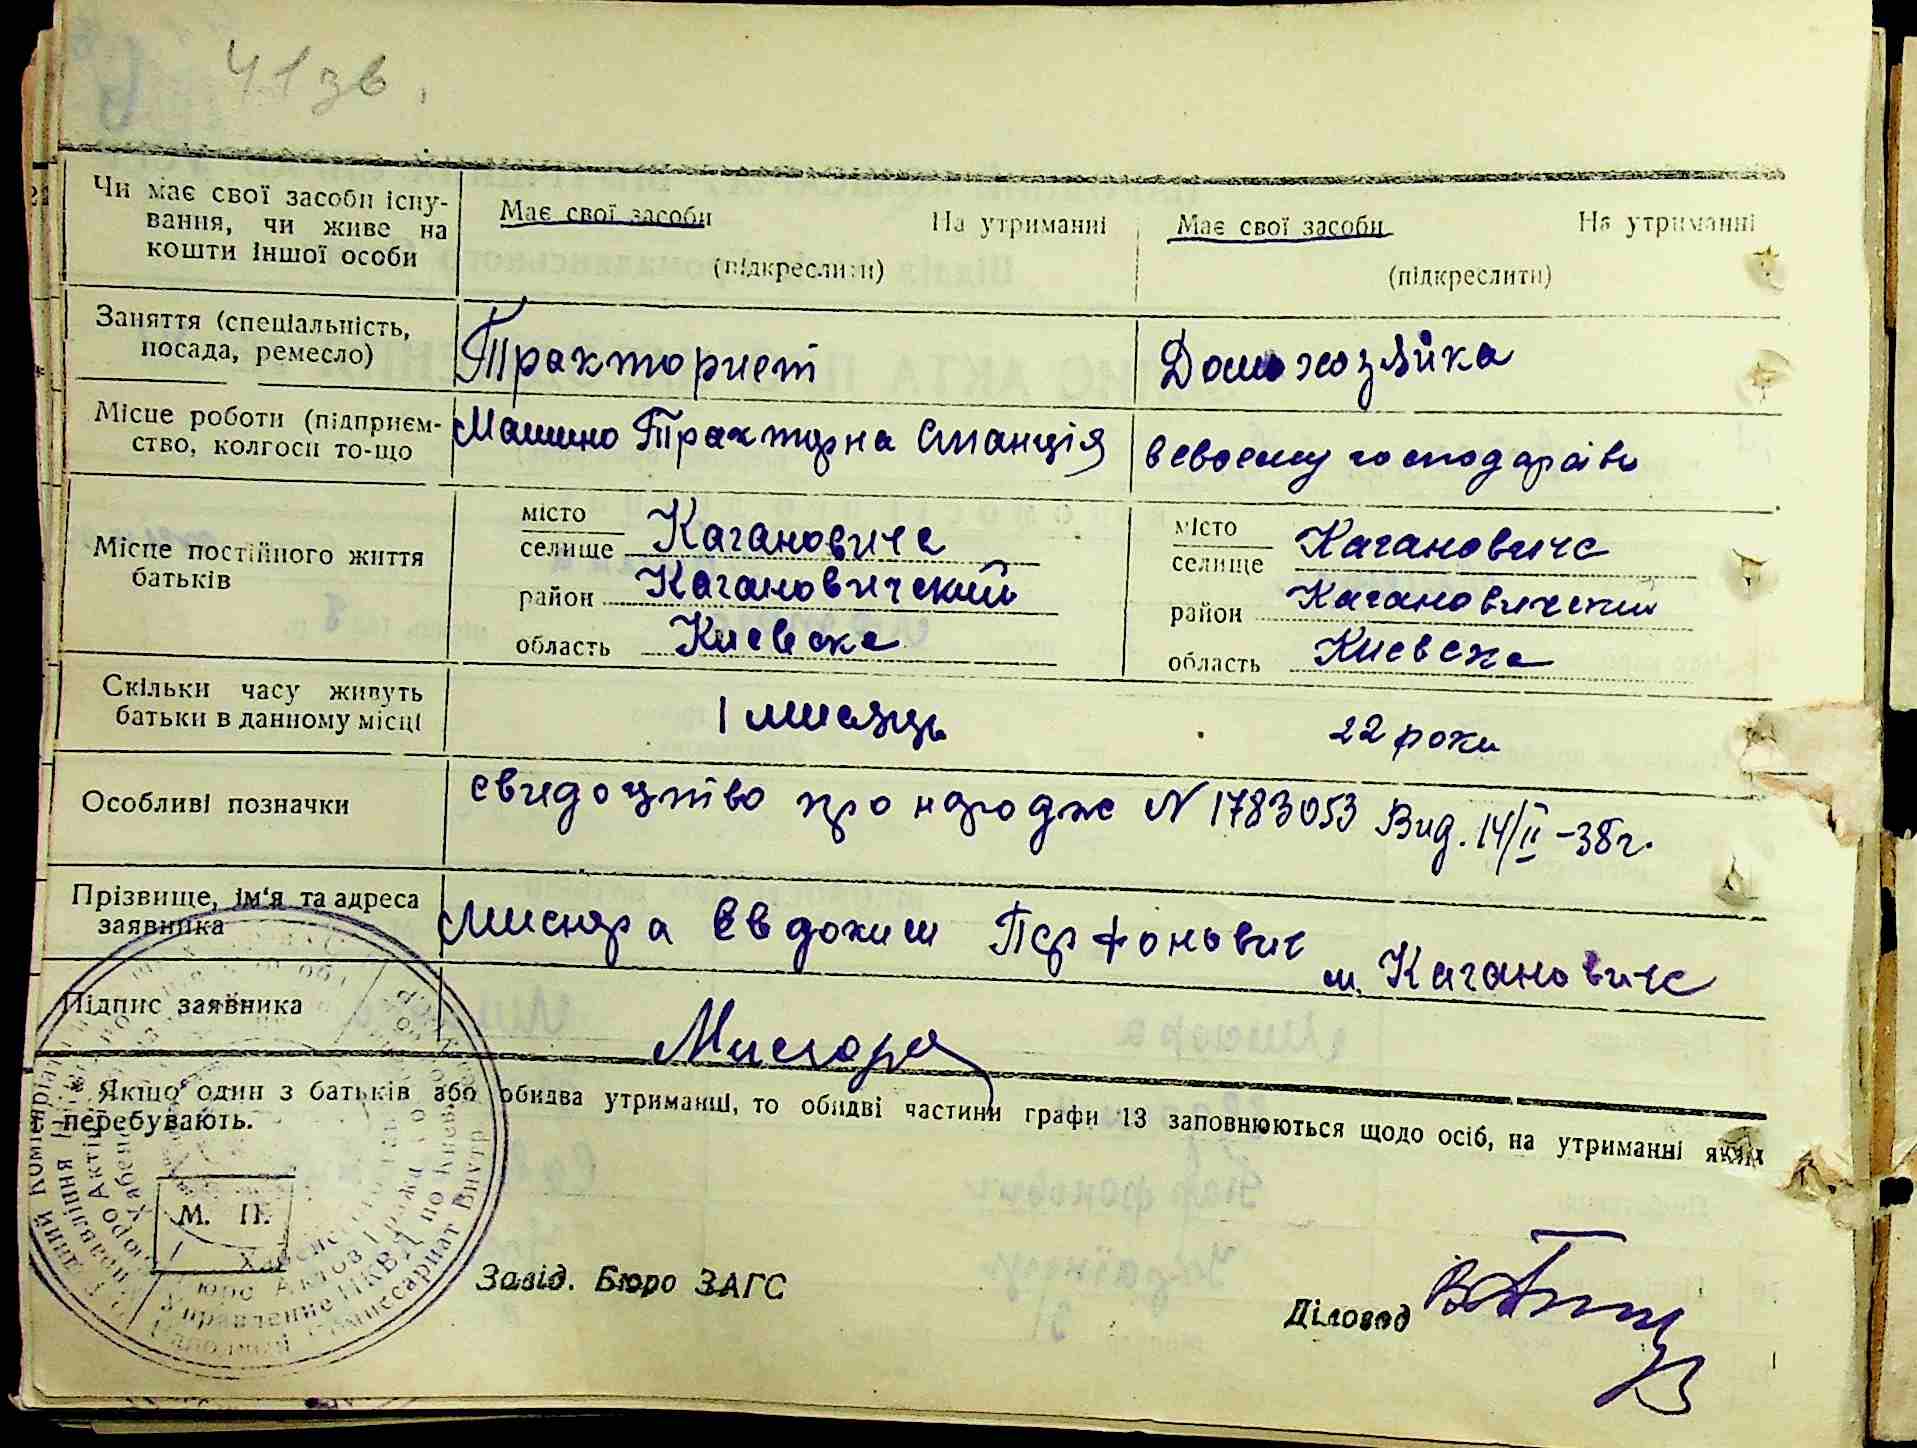 41 зв.
Чи має свої засоби існу-
вання, чи живе на
кошти іншої особи
Має свої засоби На утриманні
(підкреслити)
Має свої засоби На утриманні
(підкреслити)
Заняття (спеціальність,
посада, ремесло)
Тракторист
Домохозяйка
Місце роботи (підприєм-
ство, колгосп то-що
Машино Тракторна Станція
в своему господарстві
Місце постійного життя
батьків
місто
селище Кагановиче
район Кагановический
область Киевска
місто
селище Кагановиче
район Кагановический
область Киевска
Скільки часу живуть
батьки в данному місці
1 мисяць
22 роки
Особливі позначки
свидоцтво про народж N 1783053 Вид. 14/II-38г.
Прізвище, ім'я та адреса
заявника
Мисюра Евдоким Парфонович м. Кагановиче
Підпис заявника
Мисюра
* Якщо один з батьків або обидва утриманні, то обидві частини графи 13 заповнюються щодо осіб, на утриманні яких
перебувають.
М. П.
Завід. Бюро ЗАГС
Діловод